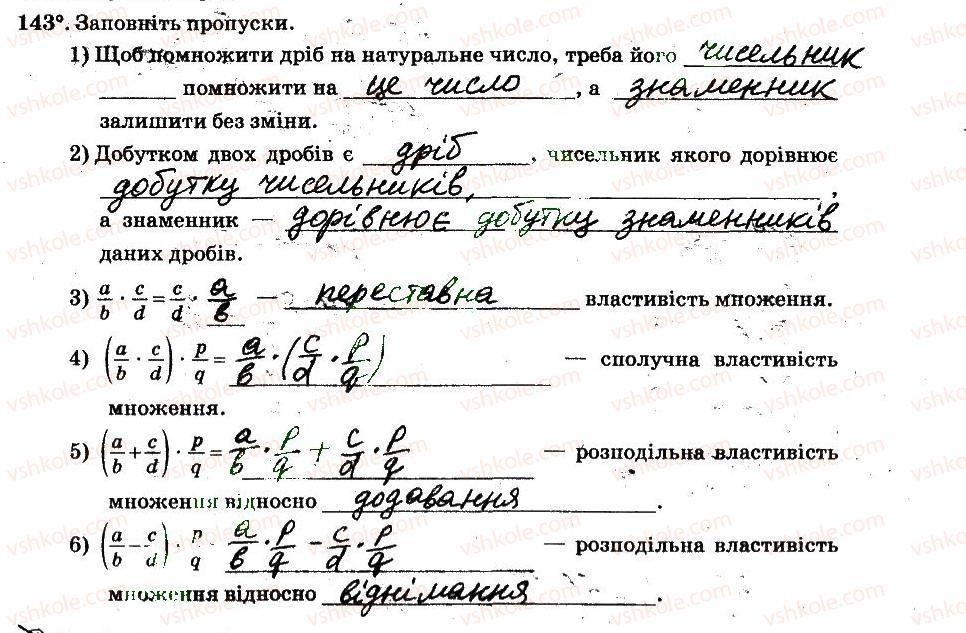 143°. Заповніть пропуски.
1) Щоб помножити дріб на натуральне число, треба його чисельник
помножити на це число, а знаменник
залишити без зміни.
2) Добутком двох дробів є дріб, чисельник якого дорівнює
добутку чисельників, ,
а знаменник — дорівнює добутку знаменників
даних дробів.
3) a/b · c/d = c/d · a/в — переставна властивість множення.
4) (a/b · c/d) · p/q = a/в · (c/d · p/q) — сполучна властивість
множення.
5) (a/b + c/d) · p/q = a/в · p/q + c/d · p/q — розподільна властивість
множення відносно додавання.
6) (a/b − c/d) · p/q a/в · p/q − c/d · p/q — розподільна властивість
множення відносно віднімання.
vshkole.com